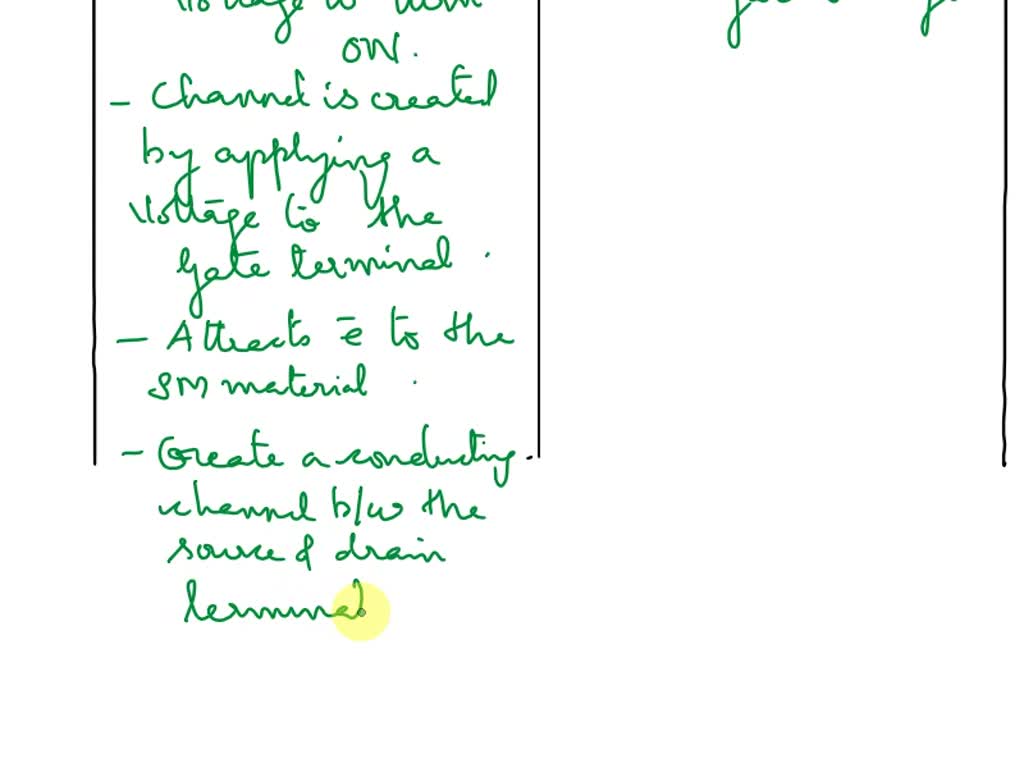 Voltage to turn
ON.
- Channel is created
by applying a
Voltage to the
gate terminal .
- Attracts ē to the
SM material .
- Create a conducting.
channel b/w the
source & drain
terminal